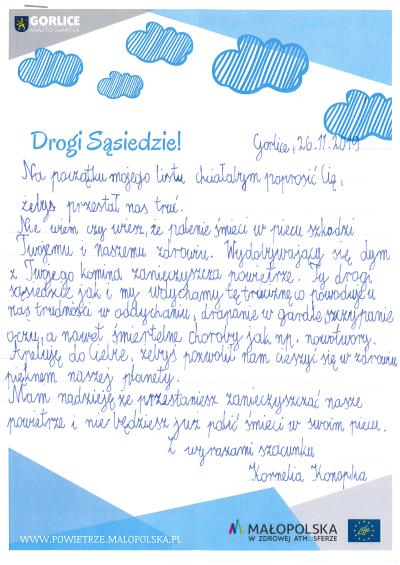 GORLICE
MIASTO ŚWIATŁA
Drogi Sąsiedzie!
Gorlice, 26.11.2019
Na początku mojego listu chciałabym poprosić Cię,
żebyś przestał nas truć.
Nie wiem czy wiesz, że palenie śmieci w piecu szkodzi
Twojemu i naszemu zdrowiu. Wydobywający się dym
z Twojego komina zanieczyszcza powietrze. Ty drogi
sąsiedzie jak i my wdychamy tę truciznę, a powoduje u
nas trudności w oddychaniu, drapanie w gardle, szczypanie
oczu, a nawet śmiertelne choroby jak np. nowotwory.
Apeluję do Ciebie, żebyś pozwolił nam cieszyć się w zdrowiu
pięknem naszej planety.
Mam nadzieję że przestaniesz zanieczyszczać nasze
powietrze i nie będziesz już palić śmieci w swoim piecu.
Z wyrazami szacunku
Kornelia Konopka
WWW.POWIETRZE.MALOPOLSKA.PL
MAŁOPOLSKA
W ZDROWEJ ATMOSFERZE
life